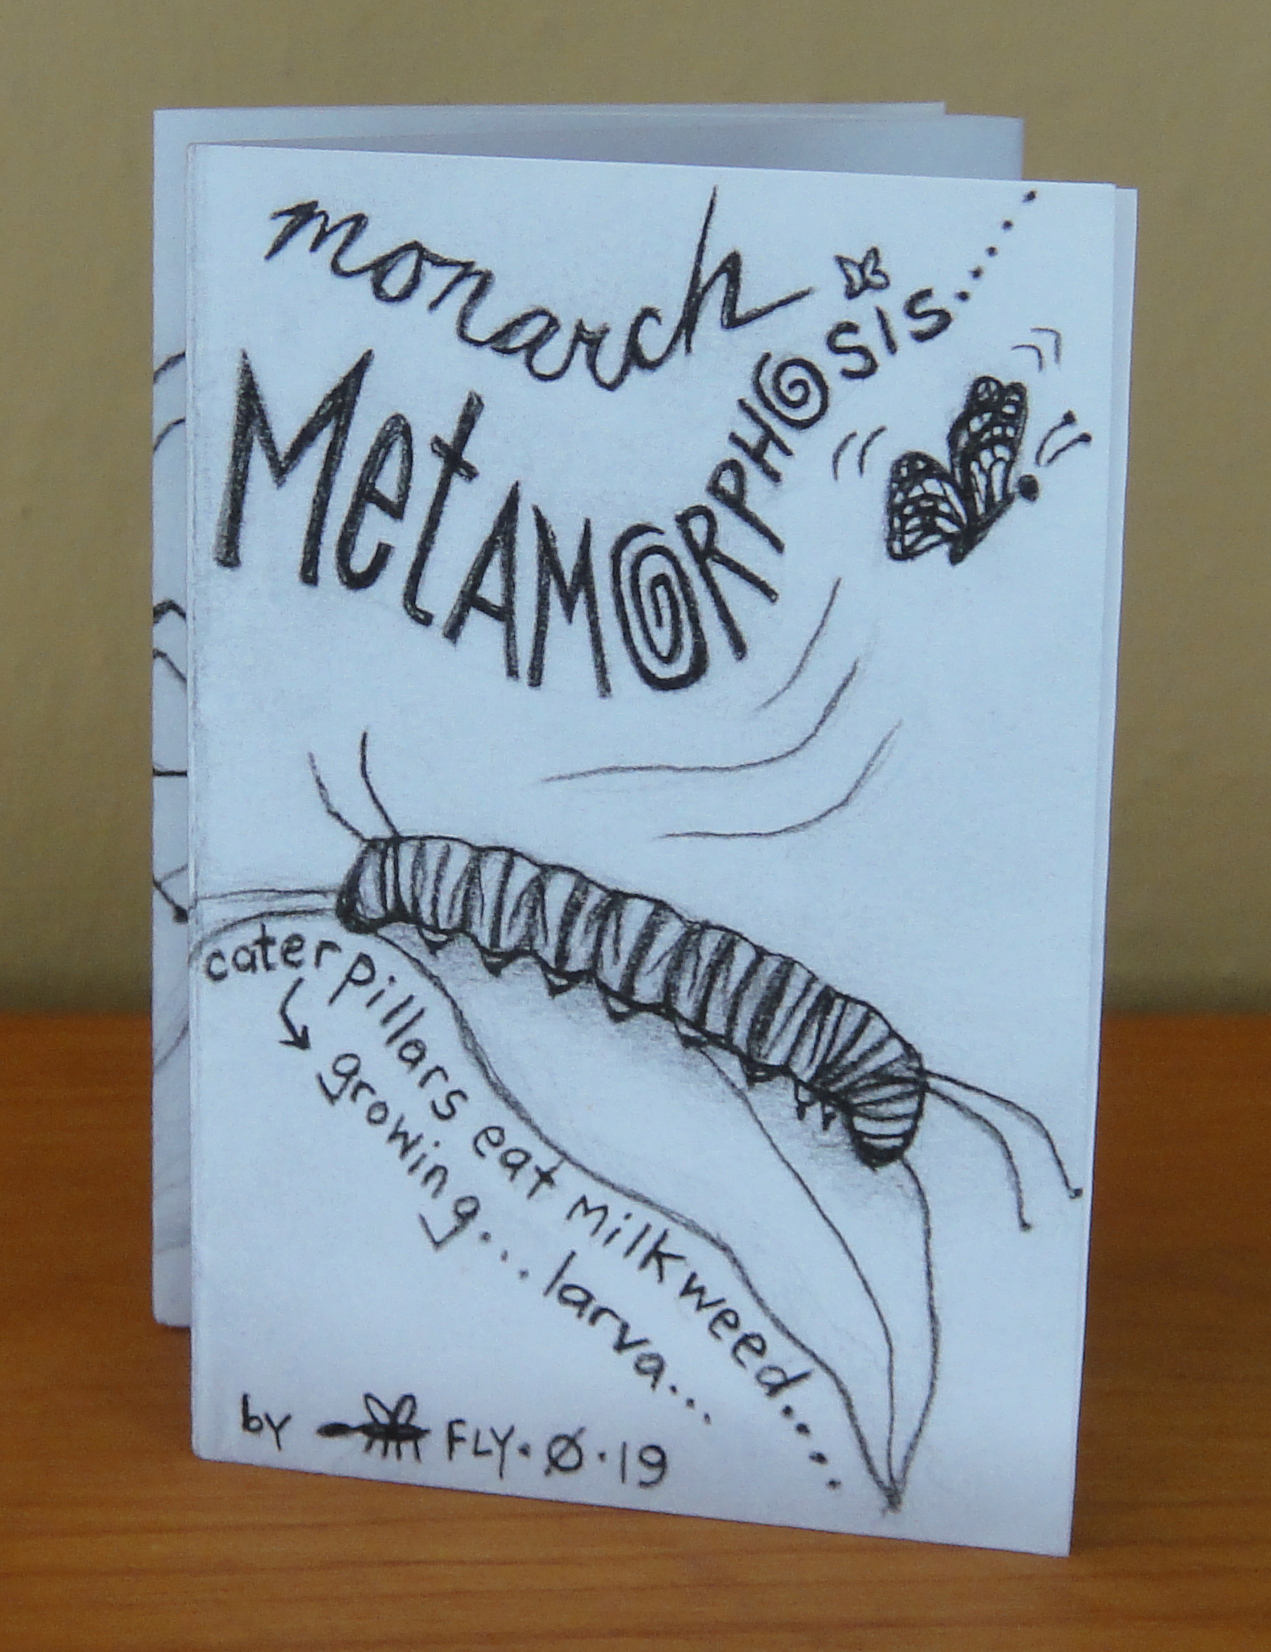 monarch
MetAMORPHOSIS....
caterpillars eat milkweed....
growing... larva...
by FLY. Ø. 19